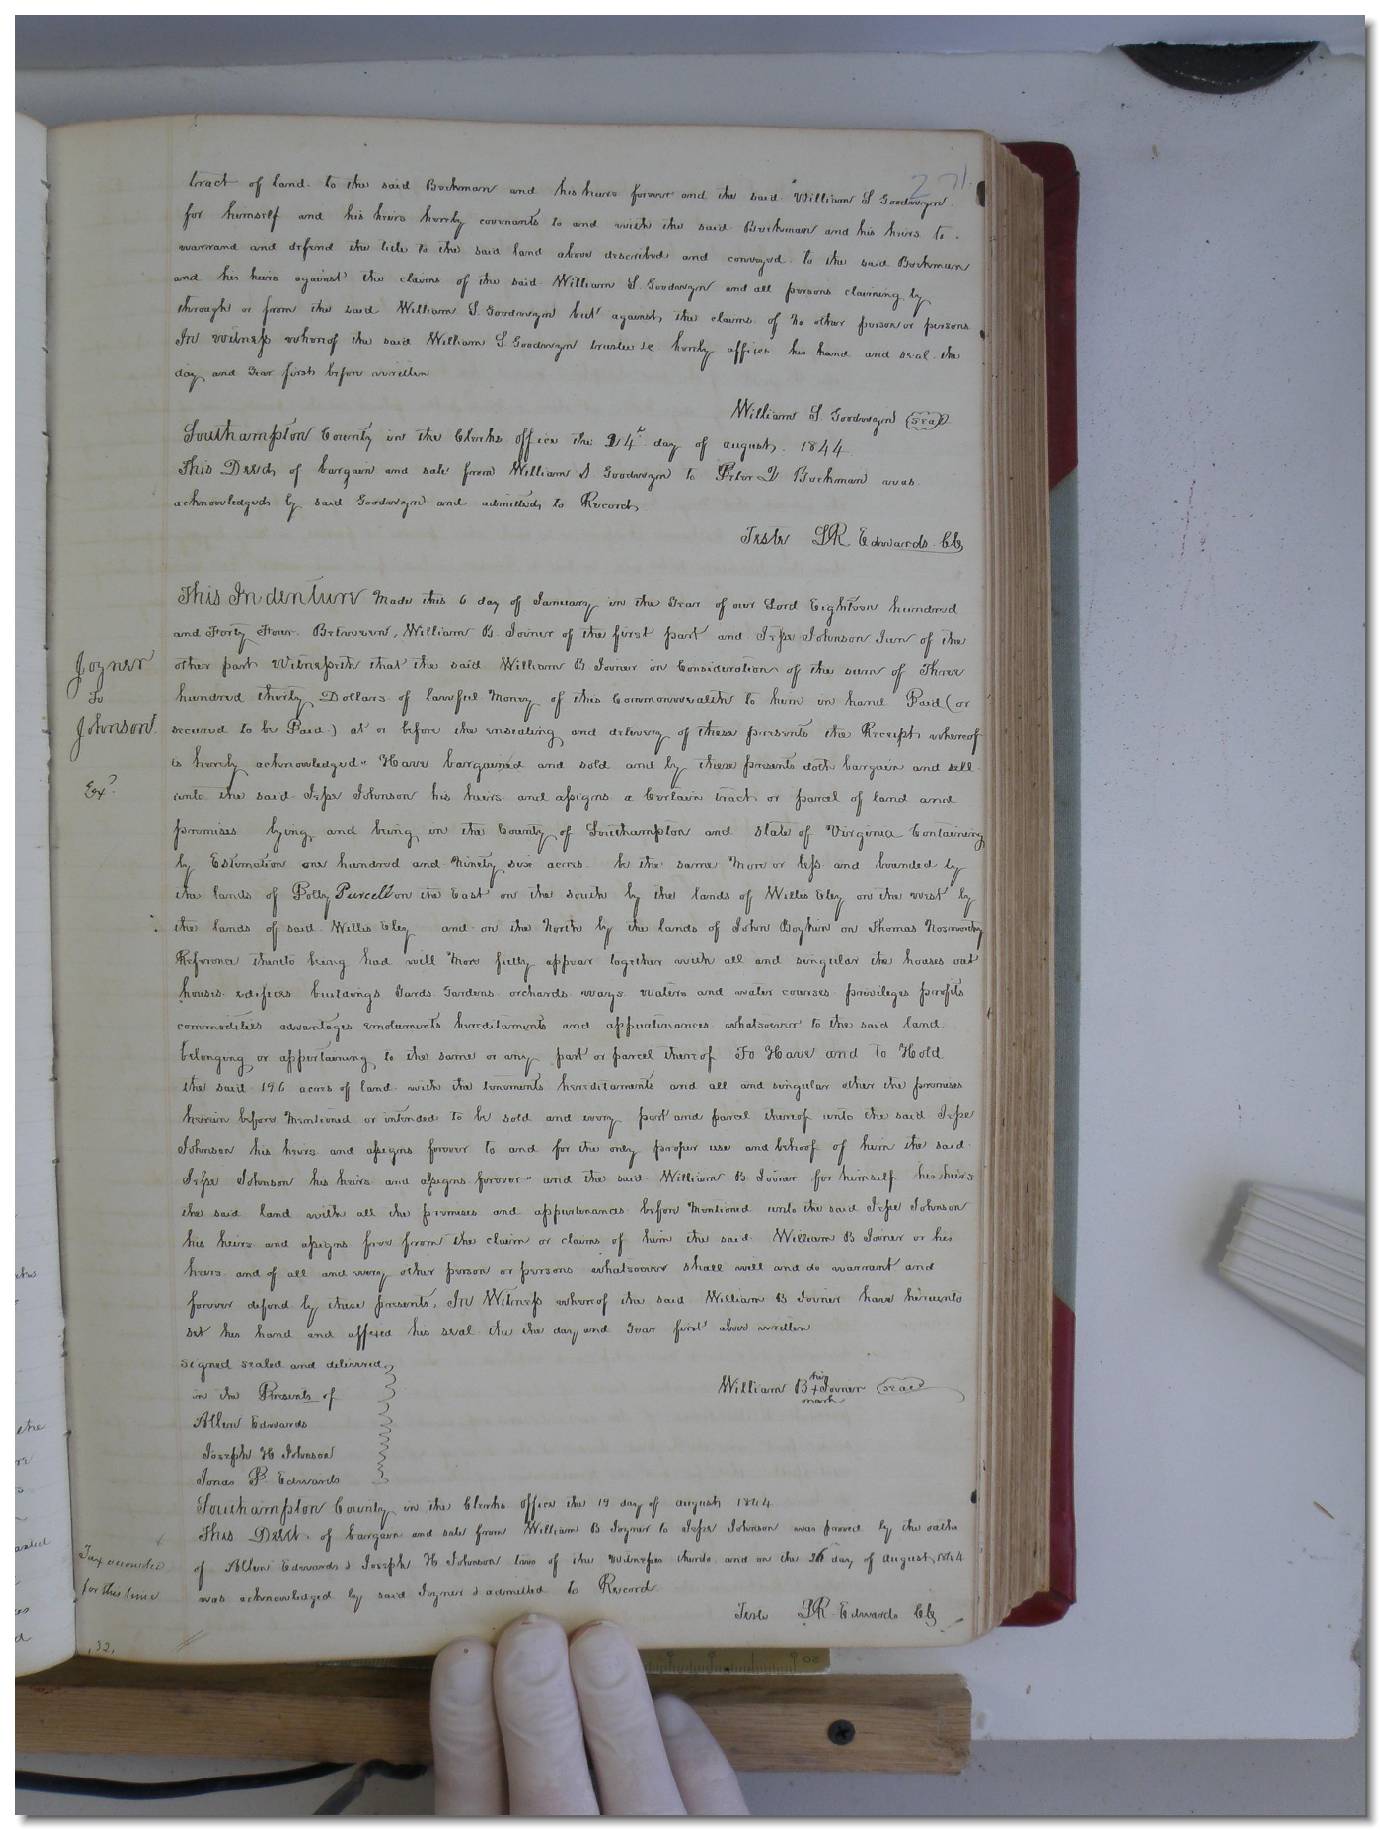 271.
tract of land to the said Beckman and his heirs forever and the said William S Goodwyn
for himself and his heirs hereby covenants to and with the said Beckman and his heirs to
warrand and defend the title to the said land above described and conveyed to the said Beckman
and his heirs against the claims of the said William S. Goodwyn and all persons claiming by
through or from the said William S. Goodwyn but against the claims of no other person or persons
In witness whereof the said William S Goodwyn trustee &c hereby affixes his hand and seal the
day and Year first before written
William S. Goodwyn (seal)
Southampton County in the Clerks office the 24th day of august 1844
This Deed of bargain and sale from William S Goodwyn to Peter Beckman was
acknowledged by said Goodwyn and admitted to Record
Teste LR Edwards Clk
This Indenture Made this 6 day of January in the Year of our Lord Eighteen hundred
and Forty Four. Between, William B. Joiner of the first part and Jesse Johnson Jun of the
Joyner
To
Johnson
Exd
other part Witnesseth that the said William B Joiner in Consideration of the sum of Three
hundred thirty Dollars of lawful Money of this Commonwealth to him in hand Paid (or
secured to be Paid) at or before the ensealing and delivery of these presents the Receipt whereof
is hereby acknowledged" Have bargained and sold and by these presents doth bargain and sell
unto the said Jesse Johnson his heirs and assigns a Certain tract or parcel of land and
premises lying and being in the County of Southampton and State of Virginia Containing
by Estimation one hundred and Ninety six acres be the same More or less and bounded by
the lands of Polly Purcell on the East on the south by the lands of Willis Eley on the west by
the lands of said Willis Eley and on the North by the lands of John Boykin on Thomas Nosworthy
Refrence thereto being had will More fully appear together with all and singular the houses out
houses edifices buildings Yards Gardens orchards ways waters and water courses privileges profits
commodities advantages emoluments hereditaments and appurtenances whatsoever to the said land
belonging or appertaining to the same or any part or parcel thereof To Have and To Hold
the said 196 acres of land with the tenements hereditaments and all and singular other the premises
herein before Mentioned or intended to be sold and every part and parcel thereof unto the said Jesse
Johnson his heirs and assigns forever to and for the only proper use and behoof of him the said
Jesse Johnson his heirs and assigns forever" and the said William B Joiner for himself his heirs
the said land with all the premises and appurtenances before Mentioned unto the said Jesse Johnson
his heirs and assigns free from the claim or claims of him the said William B Joiner or his
heirs and of all and every other person or persons whatsoever shall will and do warrant and
forever defend by these presents, In Witness whereof the said William B Joiner have hereunto
set his hand and affixed his seal the the day and Year first above written
signed sealed and delivered
in the Presents of
Allen Edwards
Joseph H Johnson
Jonas P. Edwards
his
William B + Joiner (seal)
mark
Southampton County in the Clerks office the 19 day of august 1844
This Deed of bargain and sale from William B Joyner to Jesse Johnson was proved by the oaths
of Allen Edwards & Joseph H Johnson two of the witnesses thereto and on the 26 day of august 1844
was acknowledged by said Joyner & admitted to Record
Tax
for this
Teste LR Edwards Clk
32.